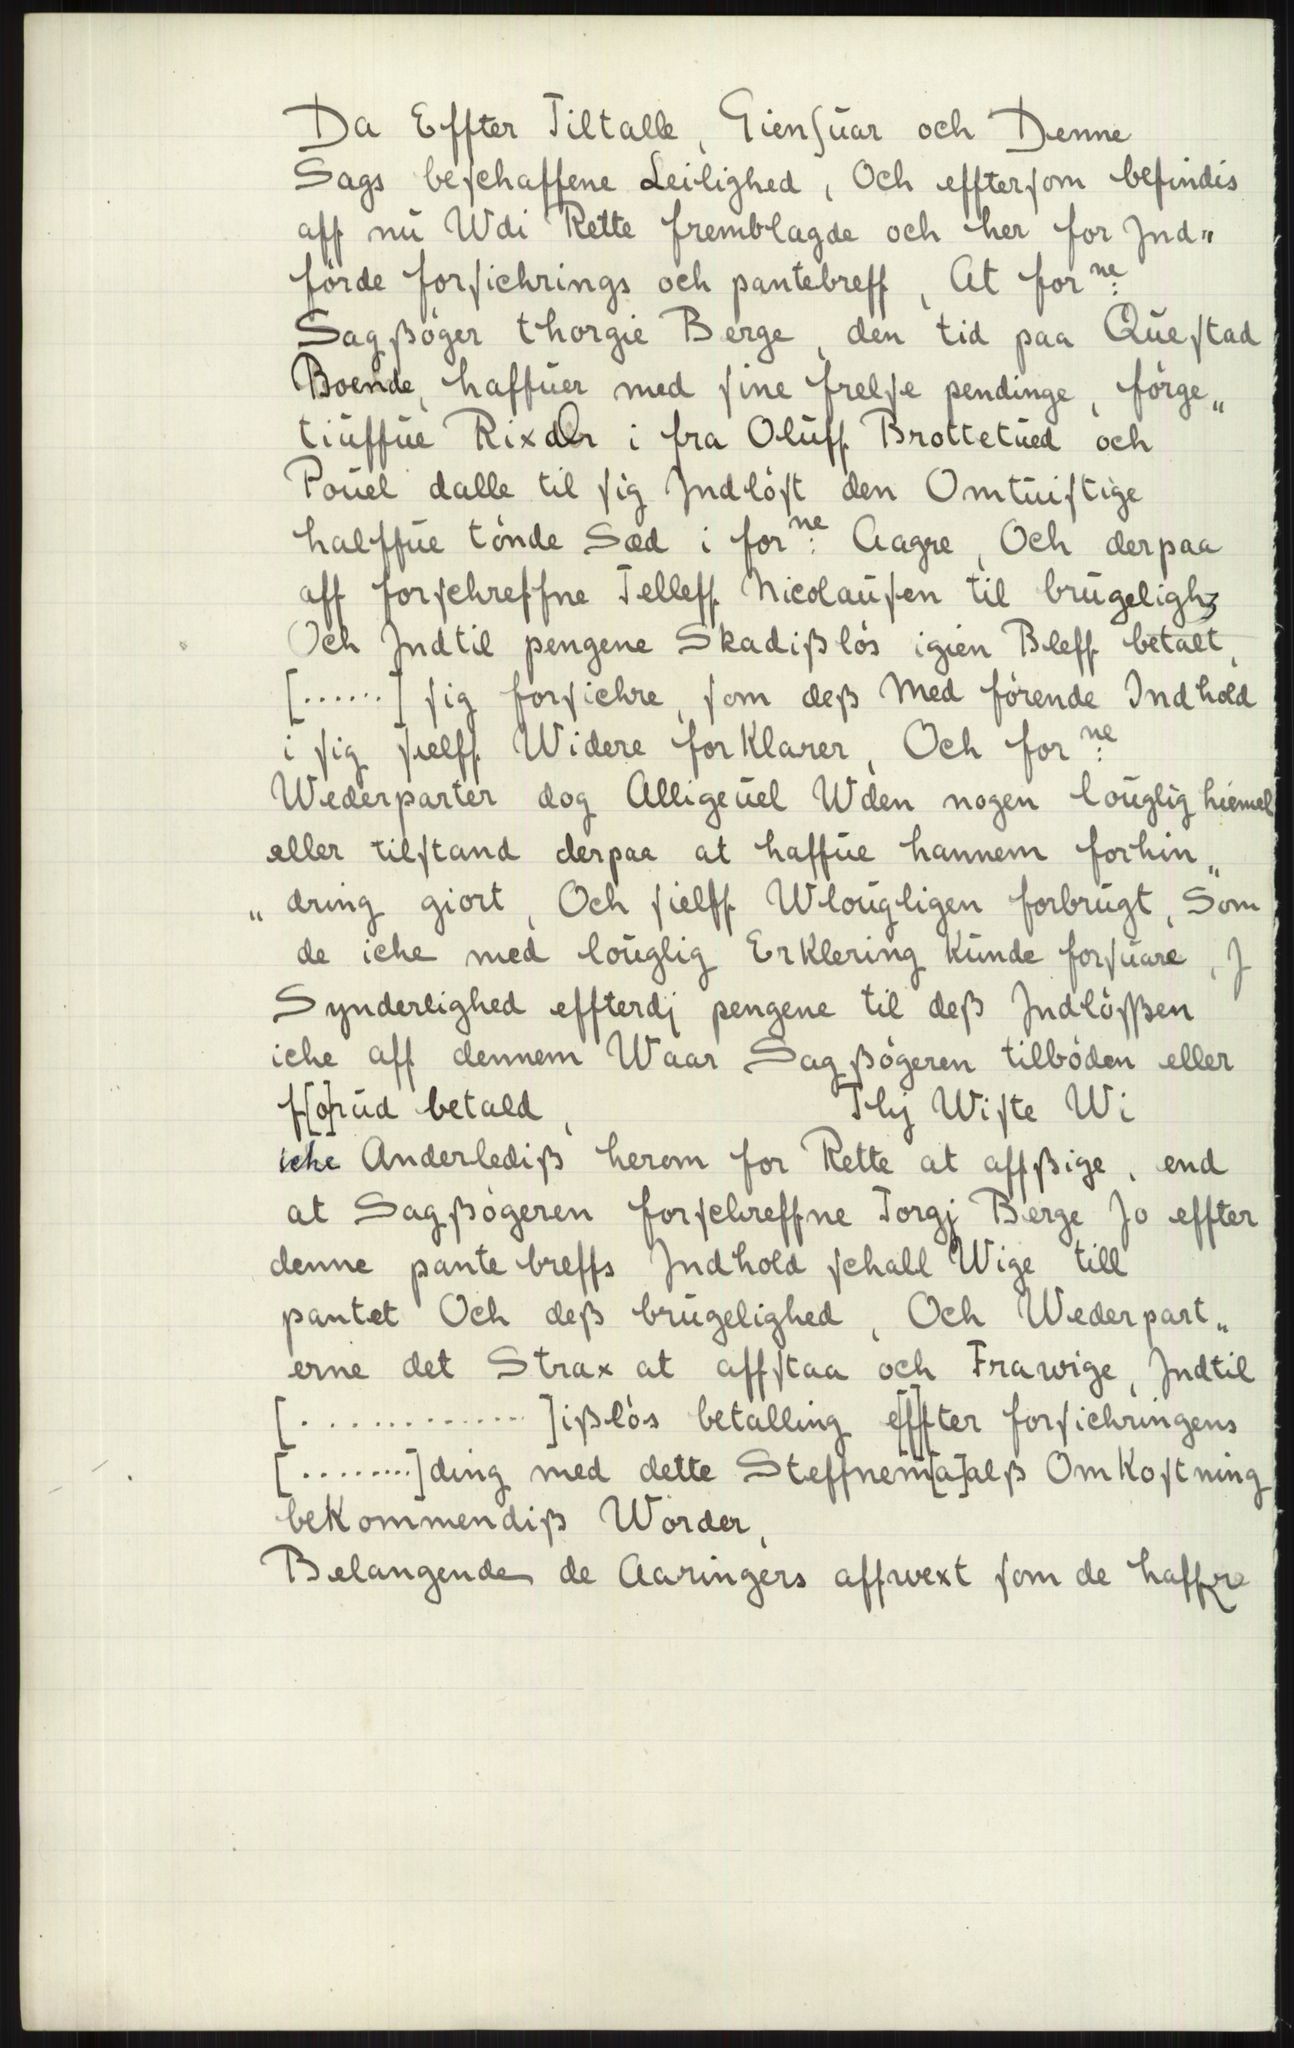 Da Effter Tiltalle, Gienſuar och Denne
Sags beſchaffene Leilighed, Och effterſom befindis
aff nu Wdi Rette fremblagde och her for Ind„
förde forſichrings och pantebreff, At for ne:
Sagßöger thorgie Berge, den tid paa Queſtad
Boende, haffuer med ſine frelſe pendinge, förge„
tiuffue Rixdlr i fra Oluff Brottetued och
Pouel dalle til ſig Indlöſt den Omtuiſtige
halffue tönde Sæd i for ne: Aagre, Och derpaa
aff forſchreffne Telleff Nicolauſen til brugeligh3
Och Indtil pengene Skadißlös igien Bleff betalt,
[......] ſig forſichre, ſom deß Med förende Indhold
i ſig ſielff Widere forklarer, Och for ne:
Wederparter dog Alligeuel Wden nogen louglig hiemel
eller tilſtand derpaa at haffue hannem forhin„
„dring giort, Och ſielff Wlougligen forbrugt, Som
de iche med louglig Erklering kunde forſuare, J
Synderlighed effterdj pengene til deß Indlöſßen
iche aff dennem Waar Sagßögeren tilböden eller
f[o]rud betald, Thj Wiſte Wi
iche Anderlediß herom for Rette at affßige, end
at Sagßögeren forſchreffne Torgj Berge Jo effter
denne pante breffs Indhold ſchall Wige till
pantet Och deß brugelighed, Och Wederpart„
erne det Strax at affſtaa och Frawige, Indtil
[.............]ißlös betalling e[ff]ter forſichringens
[.........]ding med dette Steffnem[a]alß Omkoſtning
bekommendiß Worder,
Belangende de Aaringers affwext ſom de haffue